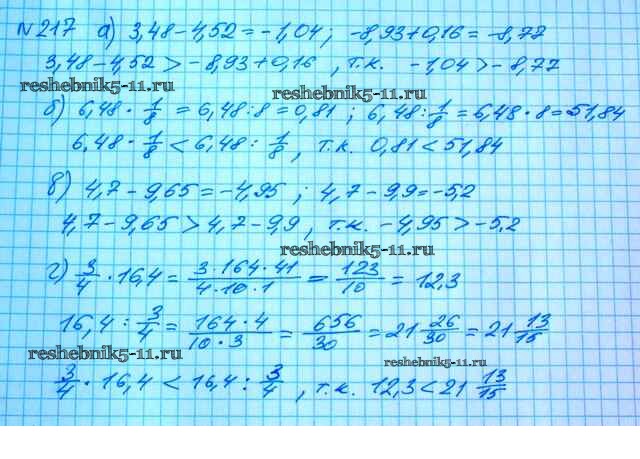 №217 а) 3,48-4,52=-1,04; -8,93+0,16=-8,77
3,48-4,52>-8,93+0,16, т.к. -1,04>-8,77
reshebnik5-11.ru
reshebnik5-11.ru
б) 6,48·1/8=6,48:8=0,81; 6,48:1/8=6,48·8=51,84
6,48·1/8<6,48:1/8, т.к. 0,81<51,84
в) 4,7-9,65=-4,95; 4,7-9,9=-5,2
4,7-9,65>4,7-9,9, т.к. -4,95>-5,2
reshebnik5-11.ru
г) 3/4·16,4=3·164·41/4·10·1=123/10=12,3
16,4:3/4=164·4/10·3=656/30=21 26/30=21 13/15
reshebnik5-11.ru
reshebnik5-11.ru
3/4·16,4<16,4:3/4, т.к. 12,3<21 13/15